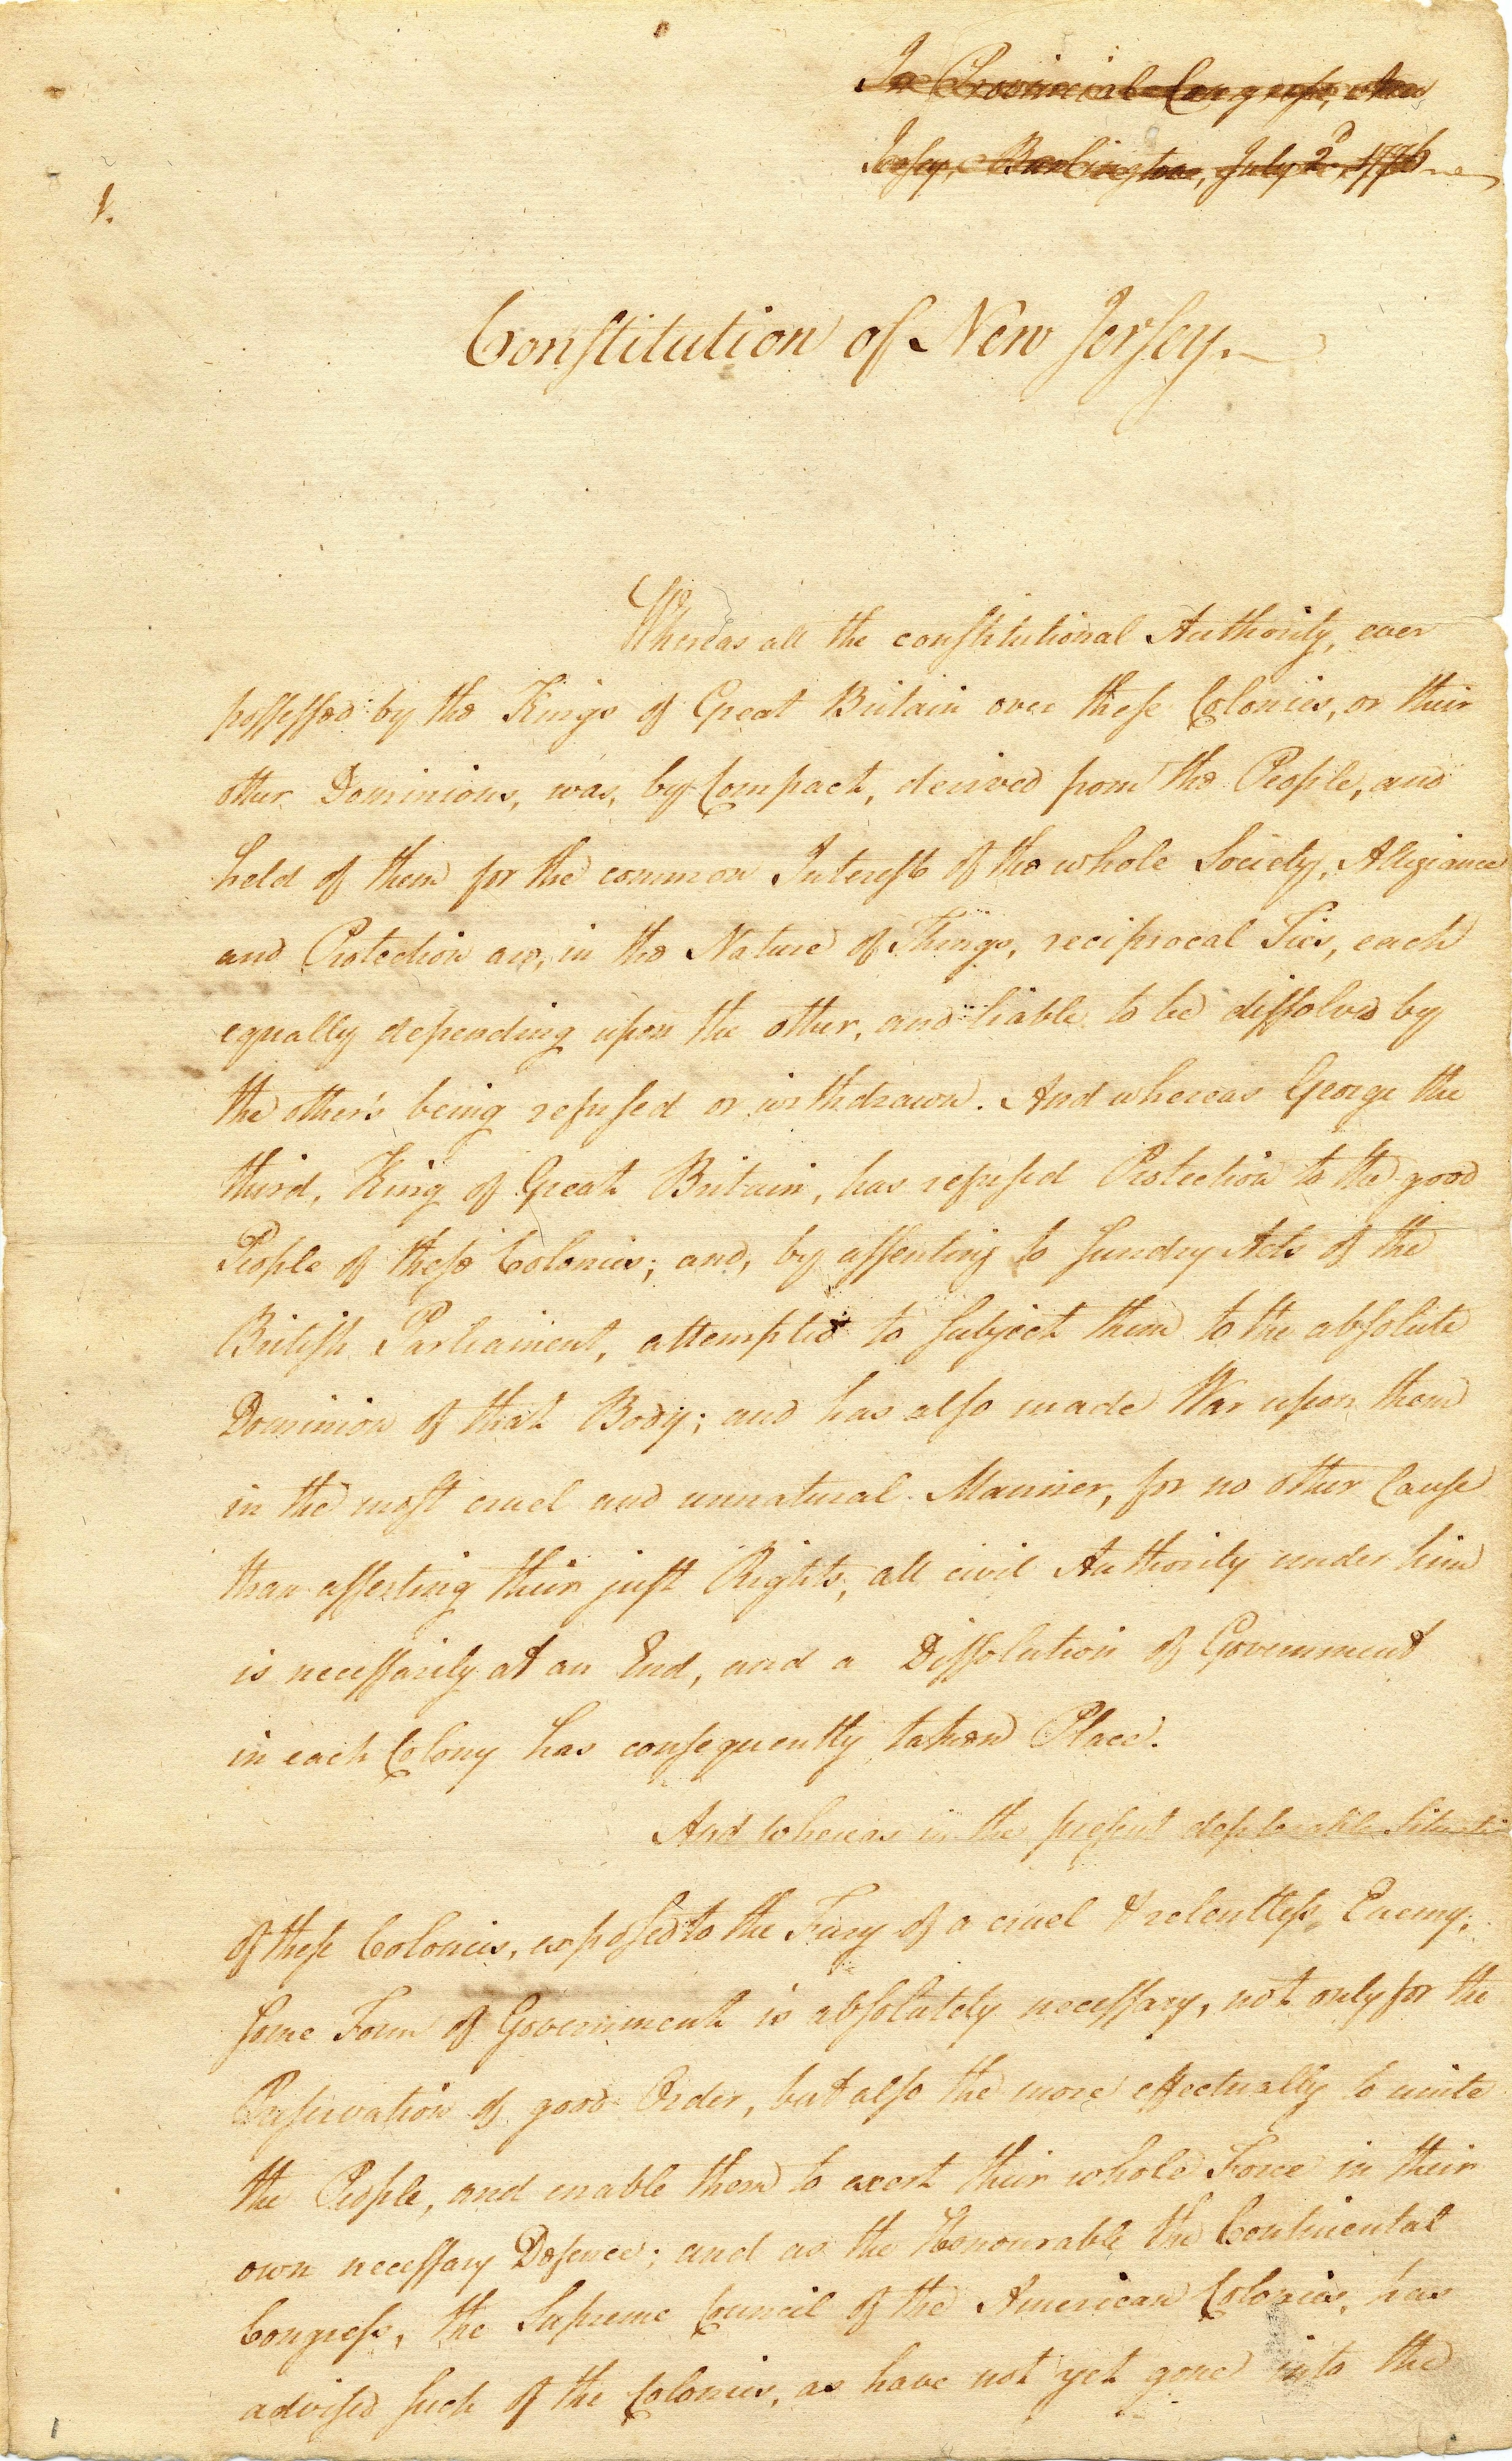 In Provincial Congreſs, New
Jerſey, Burlington, July 2d. 1776
1.
Conſtitution of New Jerſey.
Whereas all the conſtitutional Authority, ever
poſſeſſed by the Kings of Great Britain over theſe Colonies, or their
other Dominions, was, by Compact, derived from the People, and
held of them for the common Intereſt of the whole Society, Allegiance
and Protection are, in the Nature of Things, reciprocal Ties, each
equally depending upon the other, and liable to be diſſolved by
the other's being refuſed or withdrawn. And whereas George the
third, King of Great Britain, has refuſed Protection to the good
People of theſe Colonies; and, by aſſenting to ſundry Acts of the
Britiſh Parliament, attempted to ſubject them to the abſolute
Dominion of that Body; and has alſo made War upon them
in the moſt cruel and unnatural Manner, for no other Cauſe
than aſſerting their juſt Rights, all civil Authority under him
is neceſſarily at an End, and a Diſſolution of Government
in each Colony has conſequently taken Place.
And whereas in the preſent deplorable Situati
of theſe Colonies, expoſed to the Fury of a cruel & relentleſs Enemy,
ſome Form of Government is abſolutely neceſſary, not only for the
Preſervation of good Order, but alſo the more effectually to unite
the People, and enable them to exert their whole Force in their
own neceſſary Defence; and as the Honourable the Continental
Congreſs, the Supreme Council of the American Colonies, has
adviſed ſuch of the Colonies, as have not yet gone into the
1